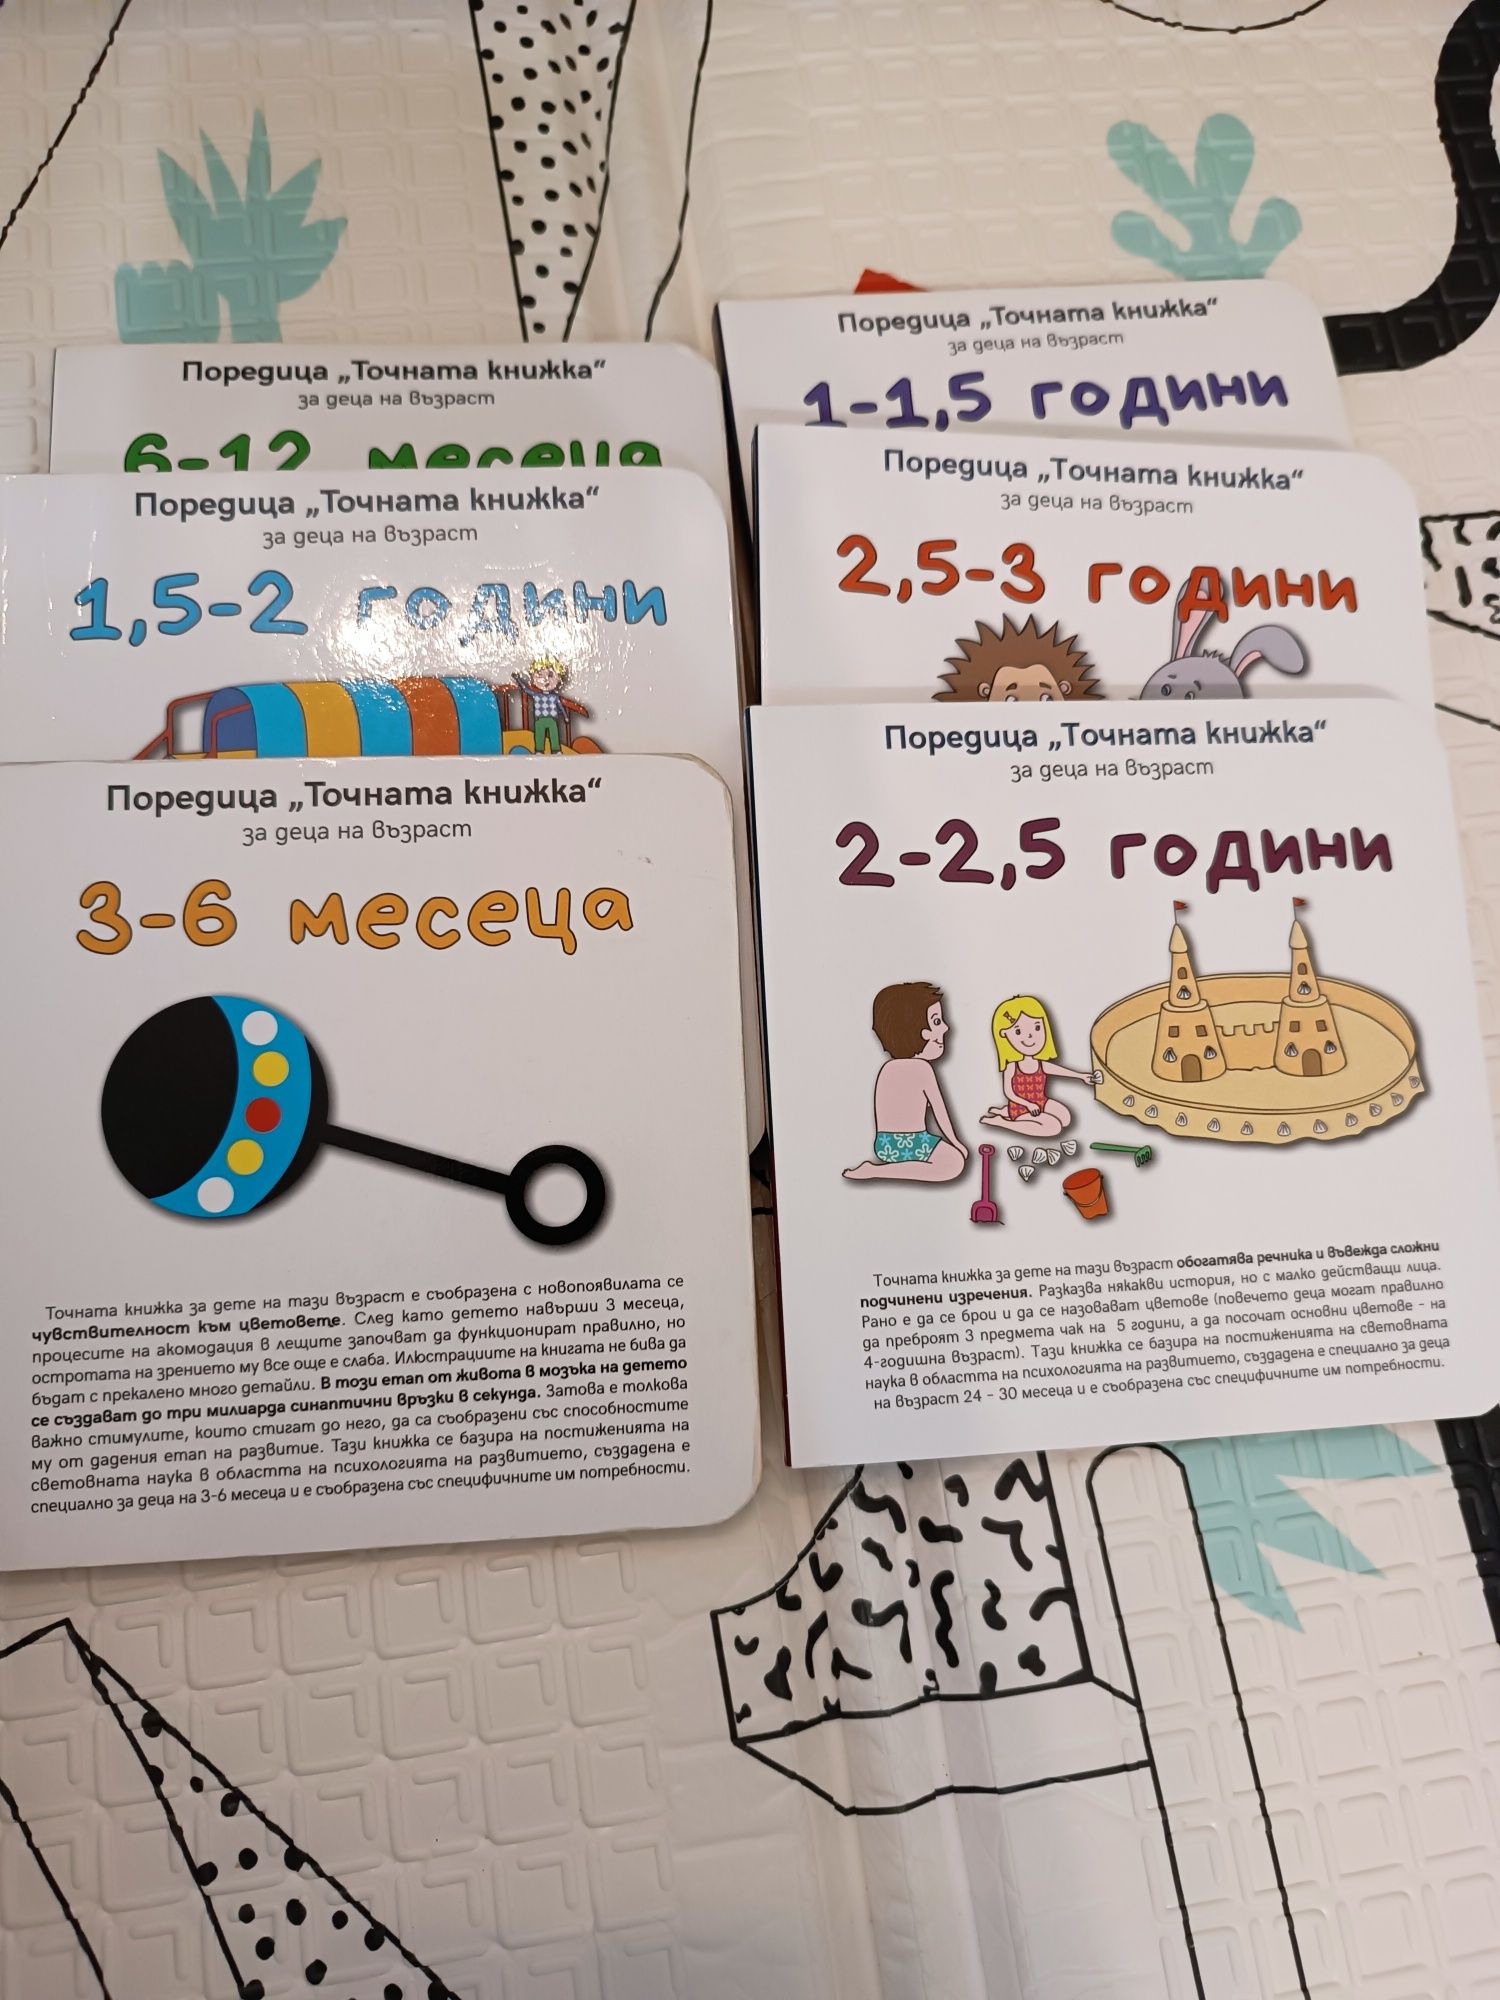 Поредица „Точната книжка“
за деца на възраст
6-12 месеца
Поредица „Точната книжка“
за деца на възраст
1,5-2 години
Поредица „Точната книжка“
за деца на възраст
3-6 месеца
Точната книжка за дете на тази възраст е съобразена с новопоявилата се
чувствителност към цветовете. След като детето навърши 3 месеца,
процесите на акомодация в лещите започват да функционират правилно, но
остротата на зрението му все още е слаба. Илюстрациите на книгата не бива да
бъдат с прекалено много детайли. В този етап от живота в мозъка на детето
се създават до три милиарда синаптични връзки в секунда. Затова е толкова
важно стимулите, които стигат до него, да са съобразени със способностите
му от дадения етап на развитие. Тази книжка се базира на постиженията на
световната наука в областта на психологията на развитието, създадена е
специално за деца на 3-6 месеца и е съобразена със специфичните им потребности.
Поредица „Точната книжка“
за деца на възраст
1-1,5 години
Поредица „Точната книжка“
за деца на възраст
2,5-3 години
Поредица „Точната книжка“
за деца на възраст
2-2,5 години
Точната книжка за дете на тази възраст обогатява речника и въвежда сложни
подчинени изречения. Разказва някакви истории, но с малко действащи лица.
Рано е да се брои и да се назовават цветове (повечето деца могат правилно
да преброят 3 предмета чак на 5 години, а да посочат основни цветове - на
4-годишна възраст). Тази книжка се базира на постиженията на световната
наука в областта на психологията на развитието, създадена е специално за деца
на възраст 24 - 30 месеца и е съобразена със специфичните им потребности.